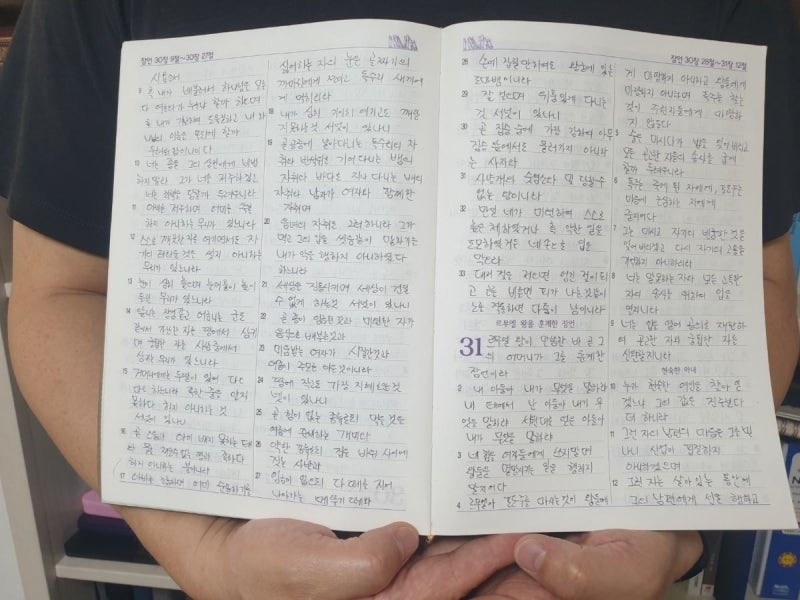 잠언 30장 9절~30장 27절
9 혹 내가 배불러서 하나님을 모른
다 여호와가 누구냐 할까 하오며
혹 내가 가난하여 도둑질하고 내 하
나님의 이름을 욕되게 할까
두려워함이니이다
10 너는 종을 그의 상전에게 비방
하지 말라 그가 너를 저주하겠고
너는 죄책을 당할까 두려우니라
11 아비를 저주하며 어미를 축복
하지 아니하는 무리가 있느니라
12 스스로 깨끗한 자로 여기면서도 자
기의 더러운 것을 씻지 아니하는
무리가 있느니라
13 눈이 심히 높으며 눈꺼풀이 높이
들린 무리가 있느니라
14 앞니는 장검 같고 어금니는 군도
같아서 가난한 자를 땅에서 삼키
며 궁핍한 자를 사람 중에서
삼키는 무리가 있느니라
15 거머리에게는 두 딸이 있어 다오
다오 하느니라 족한 줄을 알지
못하여
서넛이 있나니
16 곧 스올과 아이 배지 못하는 태와
하지 아니하는 불이니라
17 아비를 조롱하며 어미 순종하기를
싫어하는 자의 눈은 골짜기의
까마귀에게 쪼이고 독수리 새끼에
게 먹히리라
18 내가 심히 기이히 여기고도 깨닫
지 못하는 것 서넛이 있나니
19 곧 공중에 날아다니는 독수리의 자
취와 반석 위로 기어 다니는 뱀의
자취와 바다로 지나다니는 배의
자취와 남자가 여자와 함께한
자취며
20 음녀의 자취도 그러하니라 그가
먹고 그의 입을 씻음같이 말하기를
내가 악을 행하지 아니하였다
하느니라
21 세상을 진동시키며 세상이 견딜
수 없게 하는 것 서넛이 있나니
22 곧 종이 임금된 것과 미련한 자가
음식으로 배부른 것과
23 미움 받는 여자가 시집간 것과
여종이 주모를 이은 것이니라
24 땅에 작고도 가장 지혜로운 것
넷이 있나니
25 곧 힘이 없는 종류로되 먹을 것을
여름에 준비하는 개미와
26 약한 종류로되 집을 바위 사이에
짓는 사반과
27 임금이 없으되 다 떼를 지어
나아가는 메뚜기와
잠언 30장 28절~31장 12절
28 손에 잡힐 만하여도 왕궁에 있는
도마뱀이니라
29 잘 걸으며 위풍있게 다니는
것 서넛이 있나니
30 곧 짐승 중에 가장 강하여 아무
짐승 앞에서도 물러가지 아니하
는 사자와
31 사냥개와 숫염소와 및 당할 수
없는 왕이니라
32 만일 네가 미련하여 스스로
높은 체하였거나 혹 악한 일을
도모하였거든 네 손으로 입을
막으라
33 대저 젖을 저으면 엉긴 젖이 되
고 코를 비틀면 피가 나는 것같이
노를 격동하면 다툼이 남이니라
르무엘 왕을 훈계한 잠언
31 르무엘 왕이 말씀한 바 곧 그
의 어머니가 그를 훈계한
잠언이라
2 내 아들아 내가 무엇을 말하랴
내 태에서 난 아들아 내가 무
엇을 말하랴 서원대로 얻은 아들아
내가 무엇을 말하랴
3 네 힘을 여자들에게 쓰지 말며
왕들을 멸망시키는 일을 행하지
말지어다
4 르무엘아 포도주를 마시는 것이 왕들에
게 마땅하지 아니하고 왕들에게
마땅하지 아니하며 독주를 찾는
것이 주권자들에게 마땅하
지 않도다
5 술을 마시다가 법을 잊어버리고
모든 곤고한 자들의 송사를 굽게
할까 두려우니라
6 독주는 죽게 된 자에게, 포도주는
마음에 근심하는 자에게
줄지어다
7 그는 마시고 자기의 빈궁한 것을
잊어버리겠고 다시 자기의 고통을
기억하지 아니하리라
8 너는 말 못하는 자와 모든 고독한
자의 송사를 위하여 입을
열지니라
9 너는 입을 열어 공의로 재판하
여 곤고한 자와 궁핍한 자를
신원할지니라
현숙한 아내
10 누가 현숙한 여인을 찾아 얻
겠느냐 그의 값은 진주보다
더 하니라
11 그런 자의 남편의 마음은 그를 믿
나니 산업이 핍절하지
아니하겠으며
12 그런 자는 살아 있는 동안에
그의 남편에게 선을 행하고